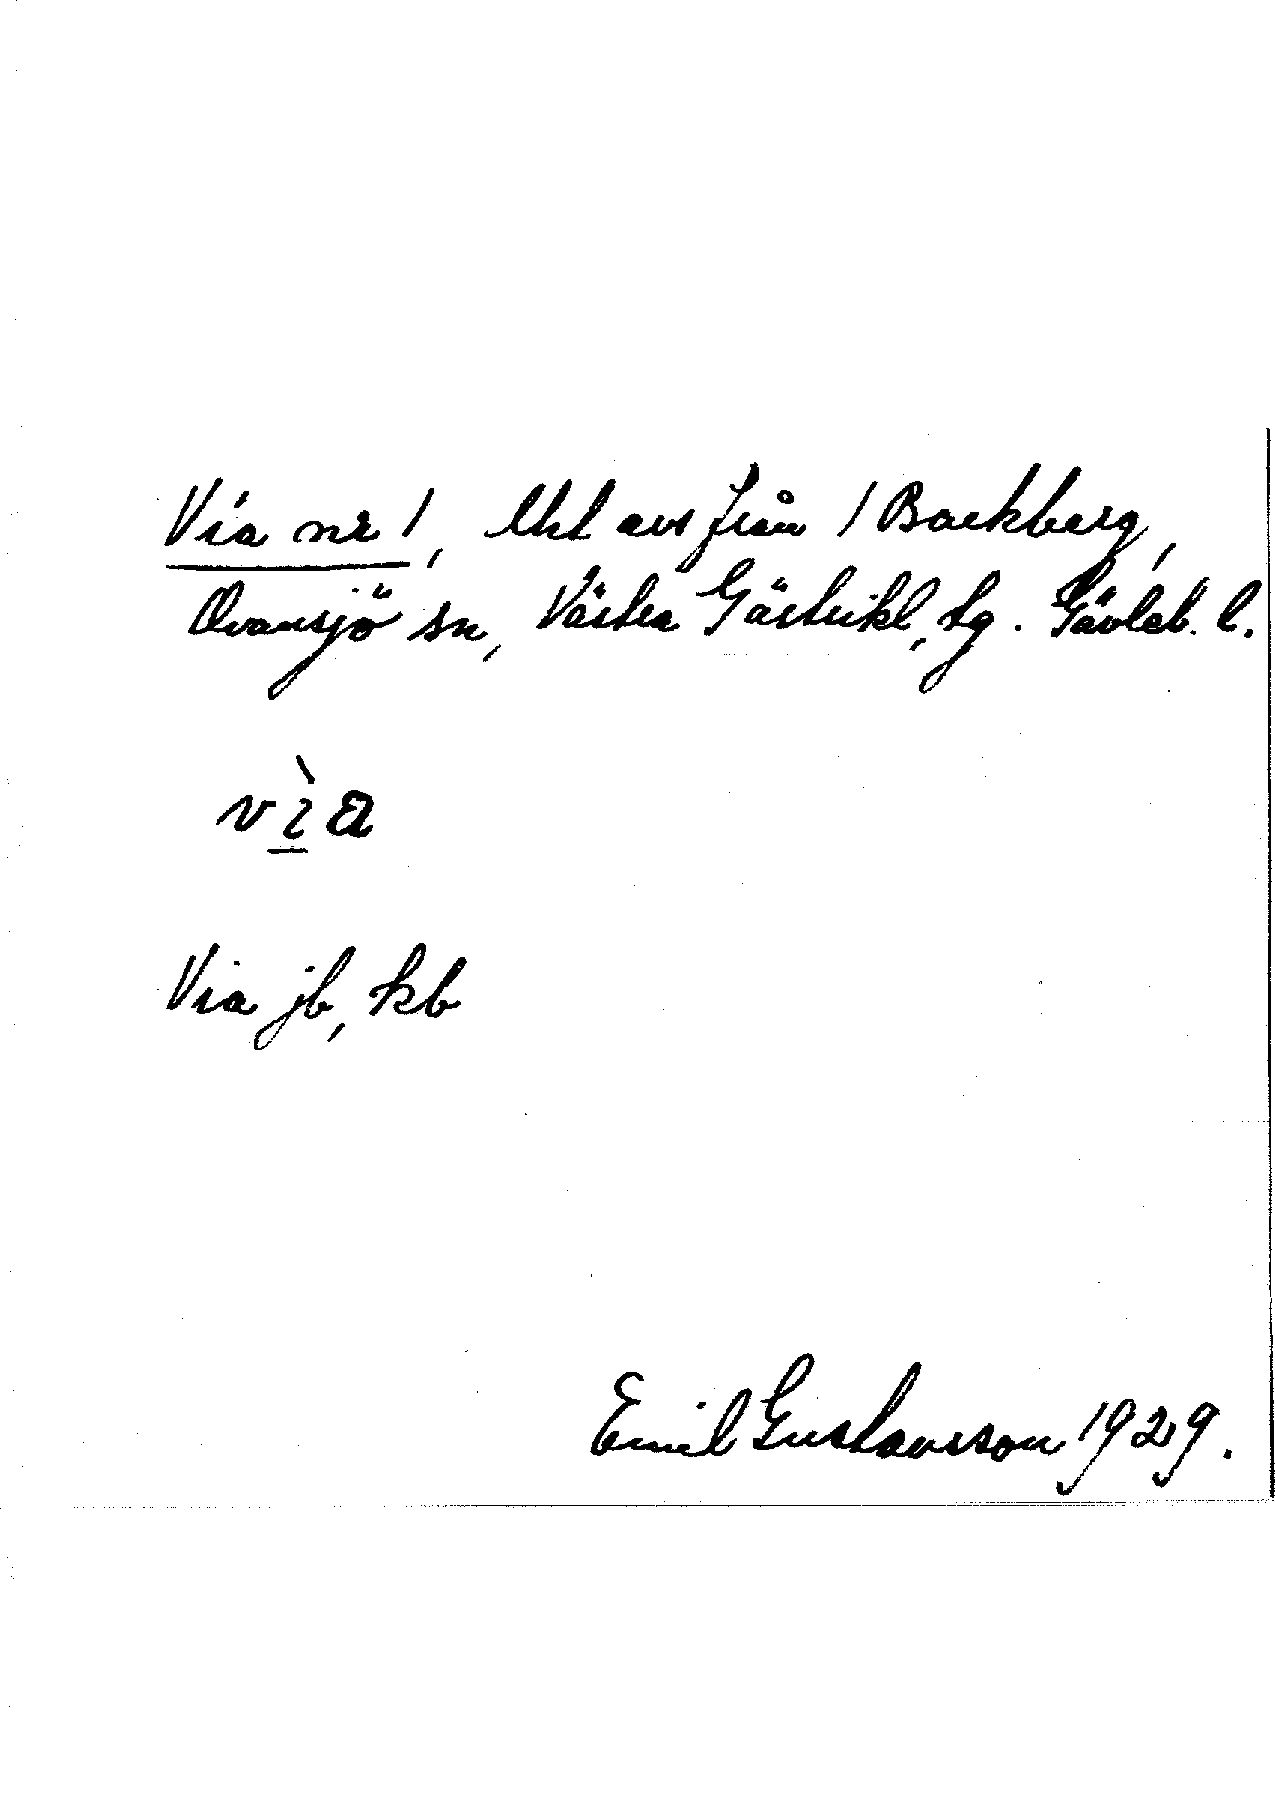 Via nr 1, lht avs från 1 Backberg,
Ovansjö sn, Västra Gästrikl. tg. Gävleb. l.
vìa
Via jb, kb
Emil Gustavsson 1929.